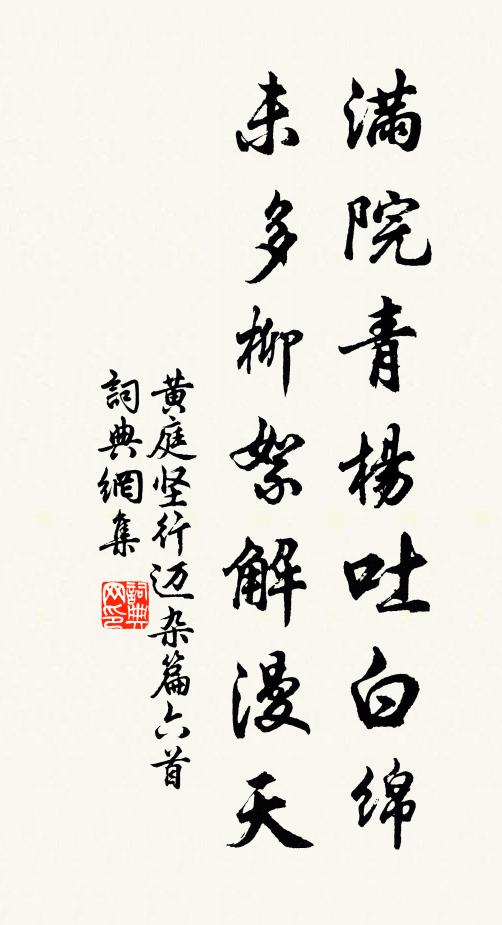 满院青楊吐白綿
未多柳絮解漫天
黄庭坚行迈杂篇六首
詞典網集
詞典网印